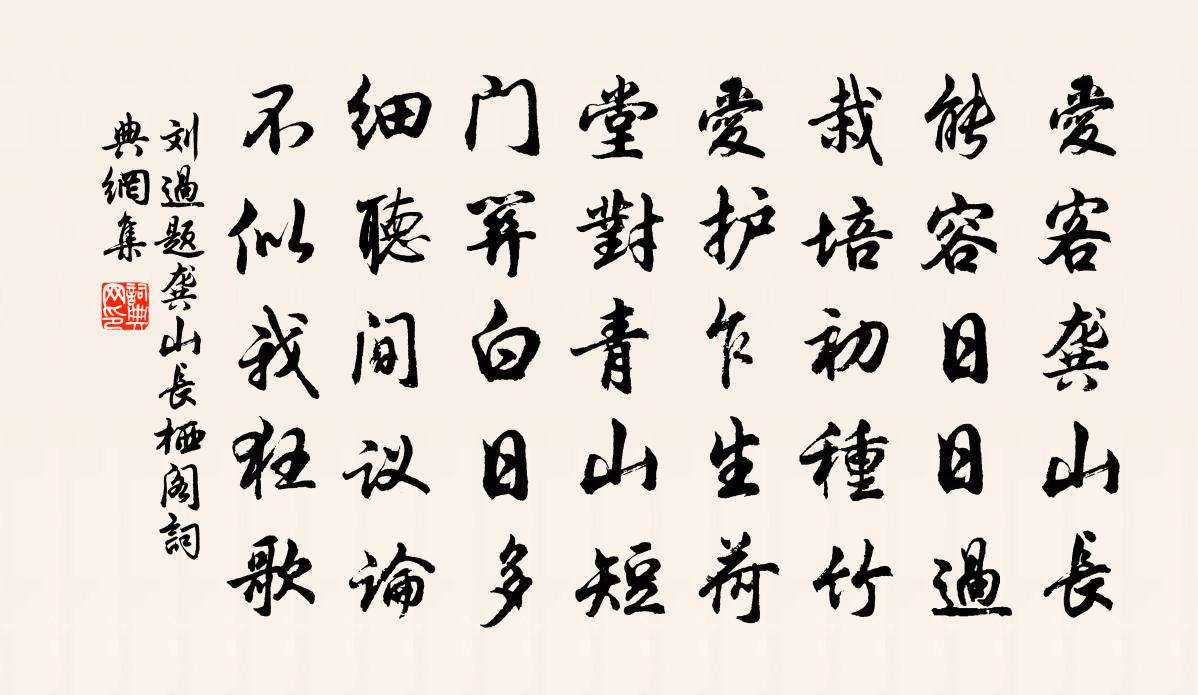 愛客龚山長
能容日日過
栽培初種竹
愛护乍生荷
堂對青山短
门開白日多
细聽间议論
不似我狂歌
刘過题龚山長栖阁詞
典網集
詞典
网印